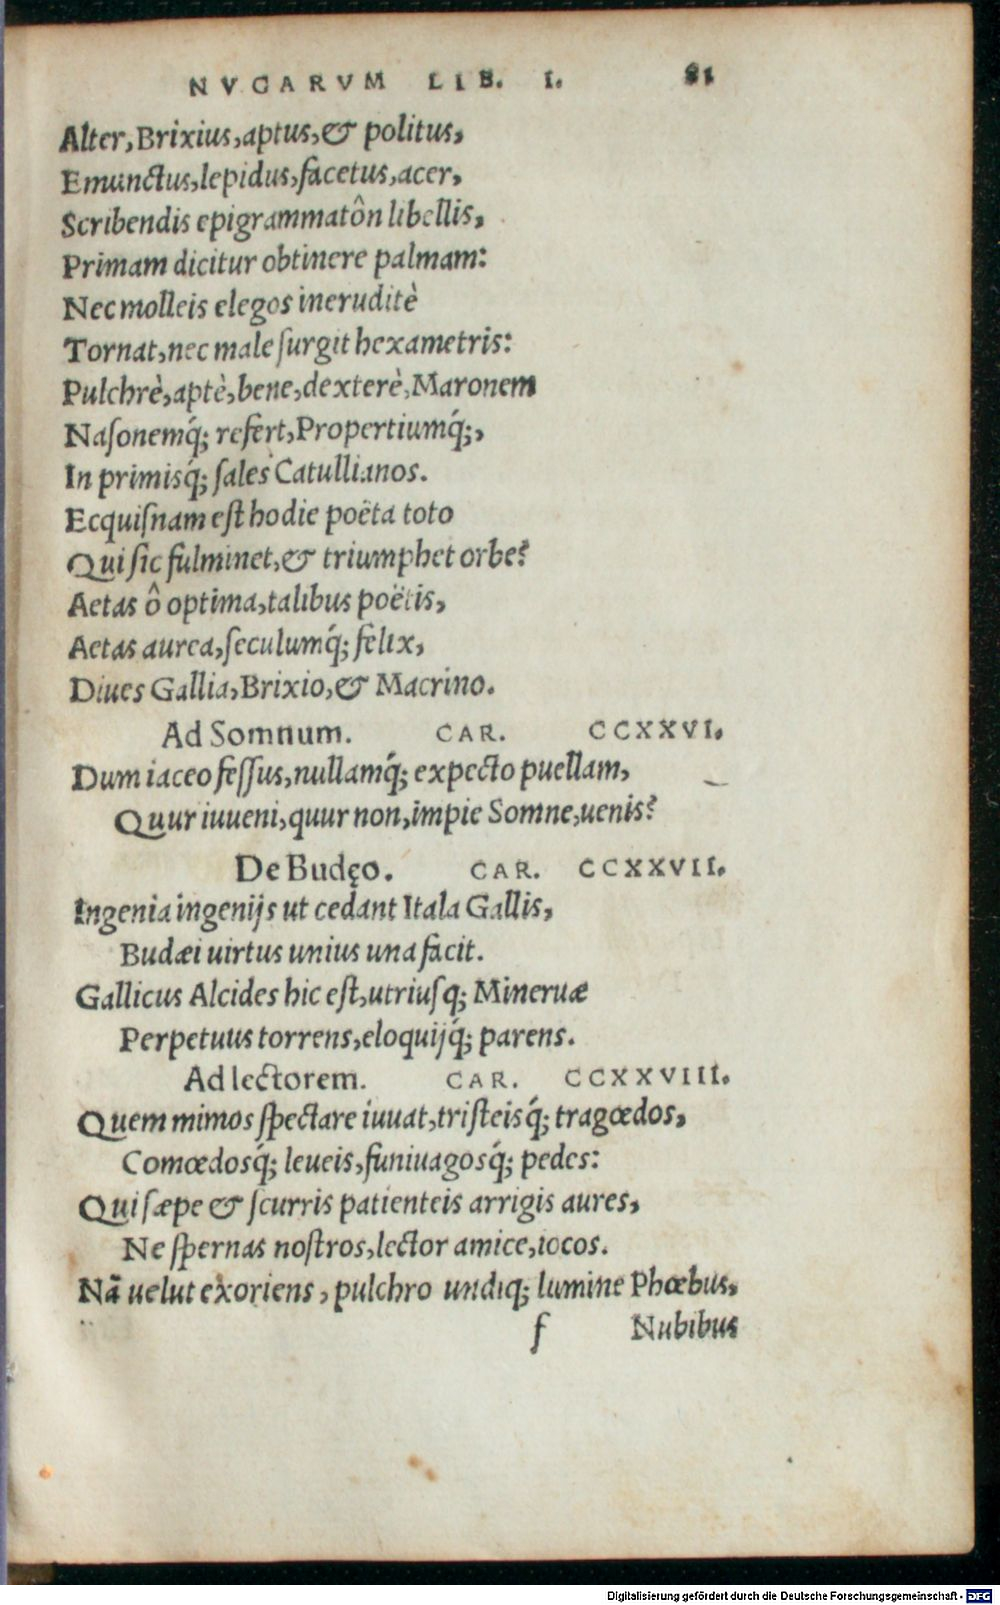 NVGARVM LIB. I. 81
Alter, Brixius, aptus, & politus,
Emunctus, lepidus, facetus, acer,
Scribendis epigrammatôn libellis,
Primam dicitur obtinere palmam:
Nec molleis elegos ineruditè
Tornat, nec male ſurgit hexametris:
Pulchrè, aptè, bene, dexterè, Maronem
Naſonemq́; refert, Propertiumq́;,
In primisq́; ſales Catullianos.
Ecquiſnam eſt hodie poëta toto
Qui ſic fulminet, & triumphet orbe?
Aetas ô optima, talibus poëtis,
Aetas aurea, ſeculumq́; felix,
Diues Gallia, Brixio, & Macrino.
Ad Somnum. CAR. CCXXVI.
Dum iaceo feſſus, nullamq́; expecto puellam,
Quur iuueni, quur non, impie Somne, uenis?
De Budęo. CAR. CCXXVII.
Ingenia ingenijs ut cedant Itala Gallis,
Budæi uirtus unius una facit.
Gallicus Alcides hic eſt, utriuſq; Mineruæ
Perpetuus torrens, eloquijq́; parens.
Ad lectorem. CAR. CCXXVIII.
Quem mimos ſpectare iuuat, triſteisq́; tragœdos,
Comœdosq́; leueis, funiuagosq́; pedes:
Qui ſæpe & ſcurris patienteis arrigis aures,
Ne ſpernas noſtros, lector amice, iocos.
Nā uelut exoriens, pulchro undiq; lumine Phœbus,
f Nubibus
Digitalisierung gefördert durch die Deutsche Forschungsgemeinschaft - DFG